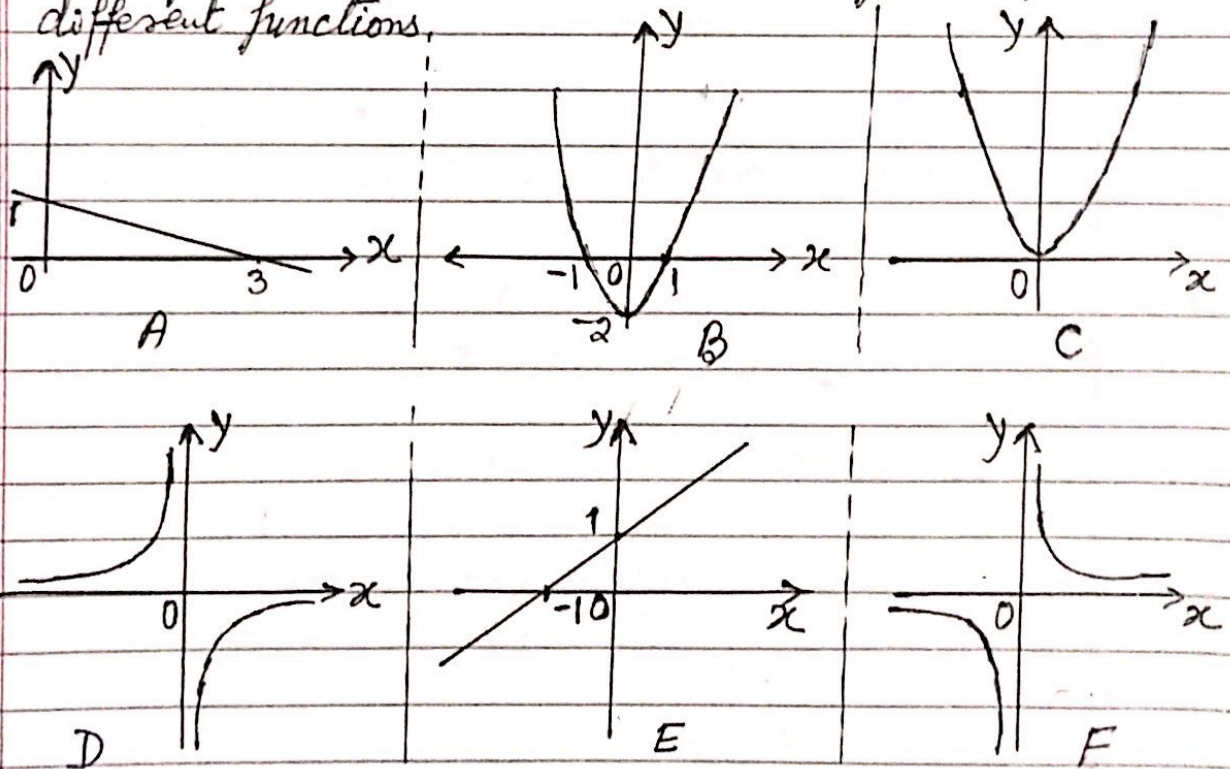 different functions.
y
1
0
3
x
A
y
-1
0
1
x
-2
B
y
0
x
C
y
0
x
D
y
1
-1
0
x
E
y
0
x
F